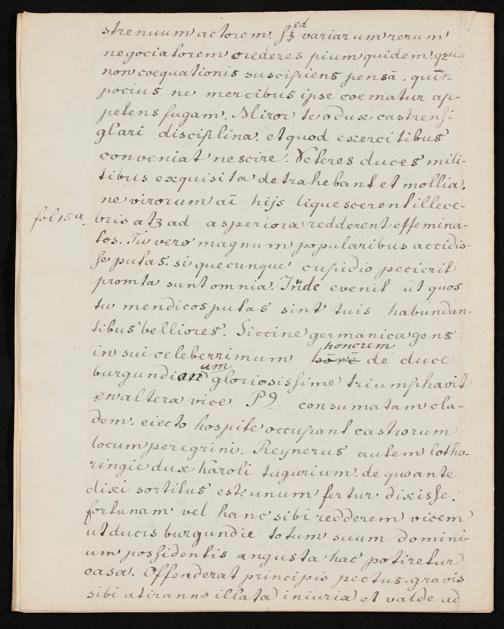 strenuum actorem. sed variarum rerum
negociatorem crederes pium quidem quia
non coequationis suscipiens pensa. quin
pocius ne mercibus ipse coematur ap-
petens fugam. Miror te o dux castrensi
glari disciplina. et quod exercitibus
conveniat nescire. Veteres duces mili-
tibus exquisita detrahebant et mollia.
ne virorum ai hijs liquescerent illece-
fol 15a. bris atz ad asperiora redderent effemina-
tos. Tu vero magnum popularibus accidis-
se putas. si quecunque cupidio pecierit
promta sunt omnia. Inde evenit ut quos
tu mendicos putas sint tuis habundan-
tibus belliores. Siccine germanica gens
in sui celeberrimum honorem de duce
burgundium gloriosissime triumphavit
en altera vice. P9 consumatam cla-
dem. eiecto hospite occupant castrorum
locum peregrini. Reynerus autem lotho-
ringie dux Karoli tugurium. de quante
dixi sortitus est. unum fertur dixisse.
fortunam vel hanc sibi redderem vicem
ut ducis burgundie totum suum domini-
um possidentis angusta hac potiretur
casa. Offenderat principis pectus. gravis
sibi a tiranno illata iniuria et valde ad